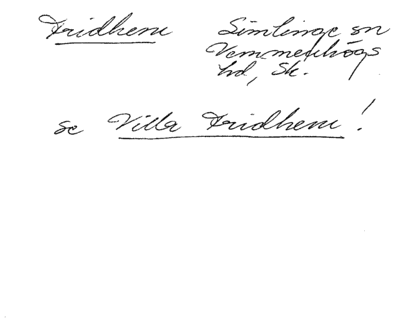 Fridhem Simlinge sn
Vemmenhögs
hd, Sk.
se Villa Fridhem!